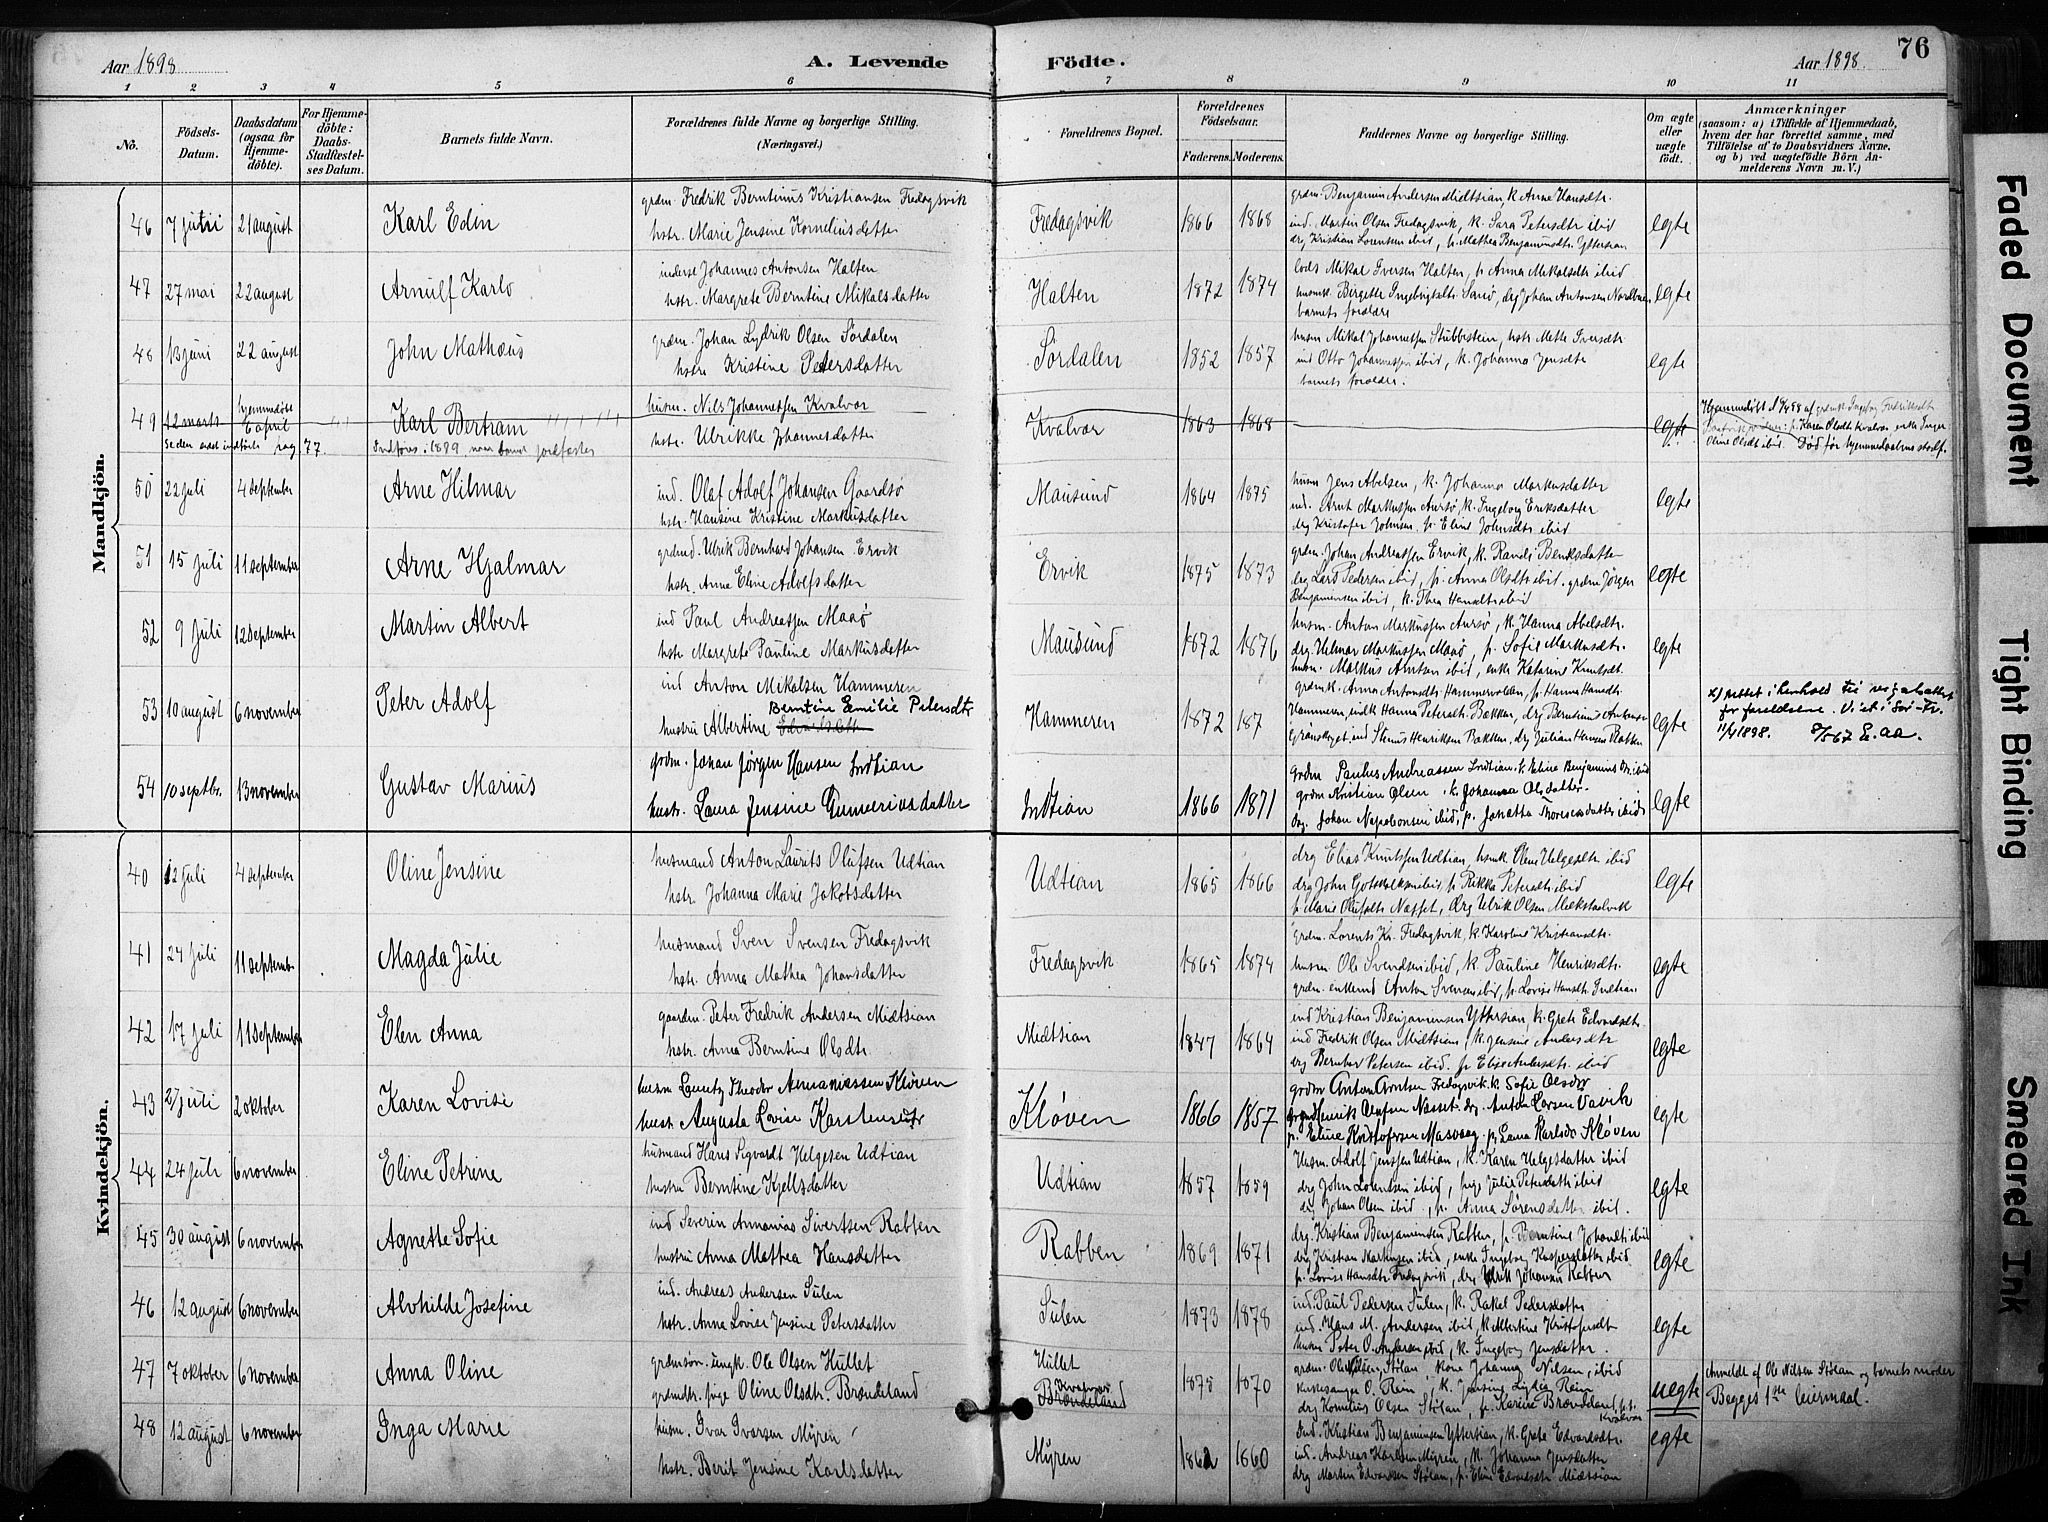 Aar 1898
A. Levende Födte.
Aar 1898.
76
1 2 3 4 5 6 7 8 9 10 11
No.
Födsels-Datum.
Daabsdatum (ogsaa for Hjemmedöbte).
For Hjemmedöbte: Daabs-Stadfæstelses Datum.
Barnets fulde Navn.
Forældrenes fulde Navne og borgerlige Stilling. (Næringsvei.)
Forældrenes Bopæl.
Forældrenes Födselsaar.
Faderens. Moderens.
Faddernes Navne og borgerlige Stilling.
Om ægte eller uægte födt.
Anmærkninger
(saasom: a) i Tilfælde af Hjemmedaab, hvem der har forrettet samme, med Tilföielse af to Daabsvidners Navne, og b) ved uægtefödte Börn Anmelderens Navn m. V.)
Mandkjön.
46 7 juni 21 august Karl Edin
grdm. Fredrik Berntinus Kristiansen Fredagsvik
hstr. Marie Jensine Korneliusdatter
Fredagsvik 1866 1868
grdm. Benjamin Andersen Midtsian k. Anne Hansdtr.
ind. Martin Olsen Fredagsvik, k. Sara Petersdtr ibid
drg Kristian Lorentsen ibid, p. Mathea Benjaminsdtr. Yttersian
egte
47 27 mai 22 august Arnulf Karlo
inderst Johannes Antonsen Halten
hstr. Margrete Berntine Mikalsdatter
Halten 1872 1874
lods Mikal Iversen Halten, p. Anna Mikalsdtr ibid
barnets forældre
egte
48 13 juni 22 august John Mathæus
grdm. Johan Lydrik Olsen Sørdalen
hstr. Kristine Petersdatter
Sørdalen 1852 1857
husm Mikal Johannessen Stubbestein, hstr Mette Iversdtr
ind Otto Johannessen ibid, k. Johanna Jensdtr
barnets forældre.
egte
49 12 marts hjemmedöbt 6 april Karl Bertram
husm. Nils Johannessen Kvalvær
hstr. Ulrikke Johannesdatter
Kvalvær 1863 1868
egte
50 22 juli 4 september Arne Hilmar
ind. Olaf Adolf Johansen Gaardsø
hstr. Hansine Kristine Markusdatter
Mausund 1864 1875
husm Jens Abelsen, k. Johanna Markusdatter
ind. Arnt Markussen Aursø, k. Ingeborg Eriksdatter
drg Kristofer Johnsen, p. Eline Johnsdtr ibid
egte
51 15 juli 11 september Arne Hjalmar
grdmd. Ulrik Bernhard Johansen Ervik
hstr. Anne Eline Adolfsdatter
Ervik 1875 1873
grdm. Johan Andreassen Ervik, k. Randi Bentsdatter
drg Lars Pedersen ibid, p. Anna Olsdtr ibid. grdm Jørgen
Benjaminsen ibid, k. Thea Hansdtr ibid
egte
52 9 juli 12 september Martin Albert
ind Paul Andreassen Maaø
hstr Margrete Pauline Markusdatter
Mausund 1872 1876
husm. Anton Markussen Aursø, k. Hanna Abelsdtr.
drg. Helmar Markussen Maaø, p. Sofie Markusdtr.
husm. Markus Arntsen ibid, enke Katarine Knutsdtr.
egte
53 10 august 6 november Peter Adolf
ind Anton Mikalsen Hammeren
Berntine Emilie Petersdtr
hustru Albertine
Hammeren 1872 187
grdmk. Anna Antonsdtr. Hammervolden, p. Hanna Hansdtr.
egte
54 10 septbr. 13 november Gustav Marius
grdm. Johan Jørgen Hansen Indtian
hustr. Laura Jensine Gunneriusdatter
Indtian 1866 1871
grdm Paulus Andreassen Indtian. k. Eline Benjamins Dr. ibid
grdm Kristian Olsen, k. Johanna Olsdatter.
drg. Johan Napoleonsen ibid, p. Jonetta Thoresensdatter ibid
egte
Kvindekjön.
40 12 juli 4 september Oline Jensine
husmand Anton Laurits Olufsen Udtian
hstr. Johanna Marie Jakobsdatter
Udtian 1865 1866
drg Elias Knutssen Udtian, husmk Olene Helgesdtr ibid
p. Marie Olufsdtr Nasset, drg Ulrik Olsen
egte
41 24 juli 11 september Magda Julie
husmand Sven Svensen Fredagsvik
hstr. Anna Mathea Johansdatter
Fredagsvik 1865 1874
grdm. Lorents Kr. Fredagsvik, k. Karoline Kristiansdtr.
husm. Ole Svendsen ibid, k. Pauline Henriksdtr.
grdm. enkemd Anton Svensen ibid, p. Lovise Hansdtr. Indtian
egte
42 17 juli 11 september Elen Anna
gaardm. Peter Fredrik Andersen Midtsian
hstr. Anna Berntine Olsdtr.
Midtsian 1847 1864
ind Kristian Benjaminsen Yttersian, k. Grete Edvardsdtr.
ind Fredrik Olsen Midtsian, k. Jensine Andersdtr
drg Bernhar Petersen ibid. p. Elise Andersdtr ibid
egte
43 27 juli 2 oktober Karen Lovise
husm Lauritz Theodor Annaniassen Kløven
hustr Augusta Lovise Karstensdtr
Kløven 1866 1857
grdm Anton Arntsen Fredagsvik. k. Sofie Olsdtr
p. Eline Kristofersen Masvaag. p. Lama Karlsdr Kløven
egte
44 24 juli 6 november Eline Petrine
husmand Hans Sigvardt Helgesen Udtian
hustru Berntine Kjellsdatter
Udtian 1857 1859
Husm. Adolf Jenssen Udtian, k. Karen Helgesdatter ibid
drg John Lorentsen ibid, pige Julie Petersdatr ibid
drg Johan Olsen ibid, p. Anna Sørensdatter ibid.
egte
45 30 august 6 november Agnette Sofie
ind Severin Annanias Sivertsen Rabben
hustru Anna Mathea Hansdatter
Rabben 1869 1871
drg. Kristian Benjaminsen Rabben, p. Berntine Johansdtr ibid
drg Kristian Markusen ibid, enke Ingeborg Kaspersdatter ibid
p. Lovise Hansdtr Fredagsvik, drg Ulrik Johansen Rabben
egte
46 12 august 6 november Alvhilde Josefine
ind. Andreas Andersen Sulen
hstr. Anne Lovise Jensine Petersdatter
Sulen 1873 1878
ind. Paul Pedersen Sulen, k. Rakel Pedersdatter
ind. Hans M. Andersen ibid, k. Albertine Kristofersdtr
husm Peter O. Andersen ibid, k. Ingeborg Jensdatter.
egte
47 7 oktober 6 november Anna Oline
grdmsøn. ungk. Ole Olsen Hullet
grdmdtr. pige Oline Olsdtr. Brøndeland
Hullet
Brøndeland
1875 1870
grdm. Ole Nilsen Stølan, kone Johanna Nilsen, ibid
kirkesanger O. Rein, k. Jensine Lydia Rein
drg Kornelius Olsen Stølan, p. Karine Brøndeland, p.t. Kvalvær
uegte
Anmeldt af Ole Nilsen Stølan og barnets moder
Begges 1ste leiermaal.
48 12 august 6 november Inga Marie
husm. Ivar Ivarsen Myren
hstr. Berit Jensine Karlsdatter
Myren 1862 1860
Ind. Kristian Benjaminsen Yttersian, k. Grete Edvardsdtr.
ind. Andreas Karlsen Myren, k. Johanna Jensdatter
drg Martin Edvardsen Stølan, p. Eline Edvardsdtr Midtsian
egte
Faded Document
Tight Binding
Smeared Ink